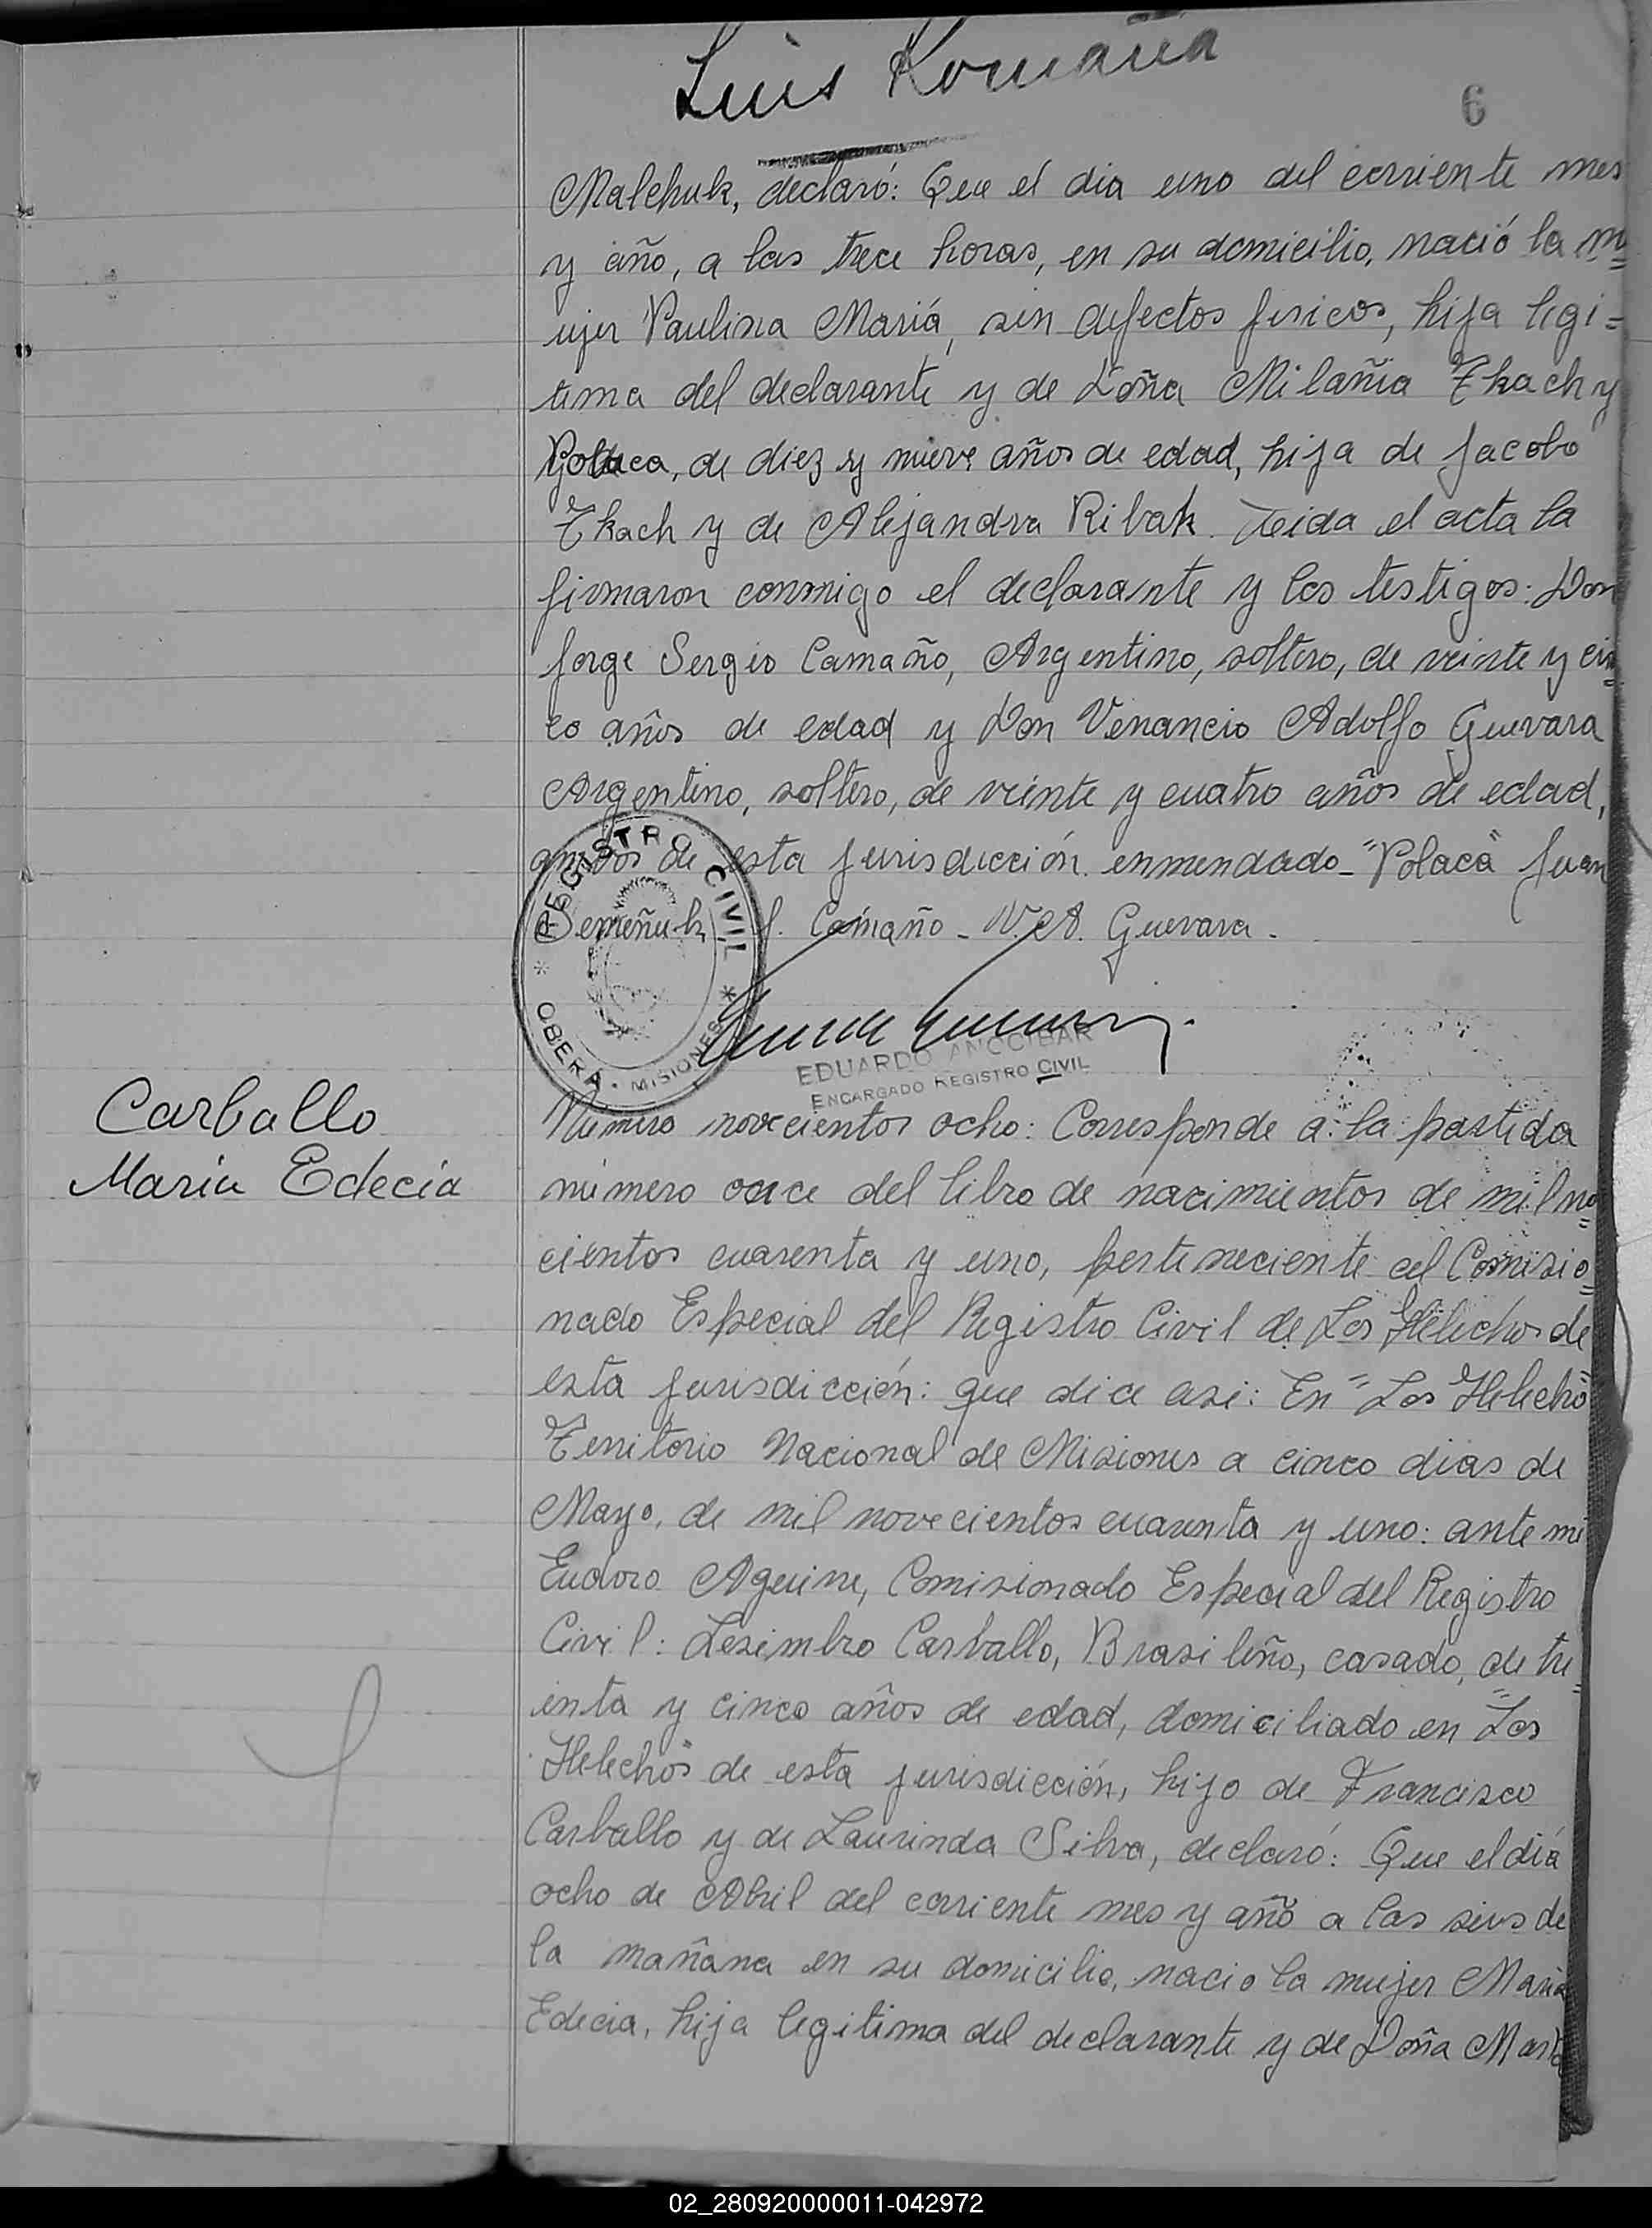 Luis Romaña
6
Malchuk, declaró: Que el dia uno del corriente mes
y año, a las trece horas, en su domicilio, nació la m=
ujer Paulina Mariá, sin defectos fisicos, hija legi=
tima del declarante y de Doña Milañia Tkach y
Polaca, de diez y nueve años de edad, hija de Jacobo
Tkach y de Alejandra Ribak. Leida el acta la
firmaron conmigo el declarante y los testigos: Don
Jorge Sergio Camaño, Argentino, soltero, de veinte y cin=
co años de edad y Don Venancio Adolfo Guevara
Argentino, soltero, de veinte y cuatro años de edad,
ambos de esta jurisdicción. enmendado - "Polaca" Juan
Semeñuk, J. Camaño - V. A. Guevara -
REGISTRO CIVIL
OBERA · MISIONES
EDUARDO ANOCIBAR
ENCARGADO REGISTRO CIVIL
Carballo
Maria Edecia
Número novecientos ocho: Corresponde a la partida
número once del libro de nacimientos de mil no=
cientos cuarenta y uno, perteneciente al Comisio=
nado Especial del Registro Civil de Los Helechos de
esta jurisdicción: que dice asi: En "Los Helecho"
Territorio Nacional de Misiones a cinco dias de
Mayo, de mil novecientos cuarenta y uno: ante mi
Eudoro Aguirre, Comisionado Especial del Registro
Civil: Lezimbro Carballo, Brasileño, casado, de tre=
inta y cinco años de edad, domiciliado en "Los
Helechos" de esta jurisdicción, hijo de Francisco
Carballo y de Laurinda Silva, declaró: Que el diá
ocho de Abril del corriente mes y año a las seis de
la mañana en su domicilio, nacio la mujer Maria
Edecia, hija legitima del declarante y de Doña Marta
02_280920000011-042972